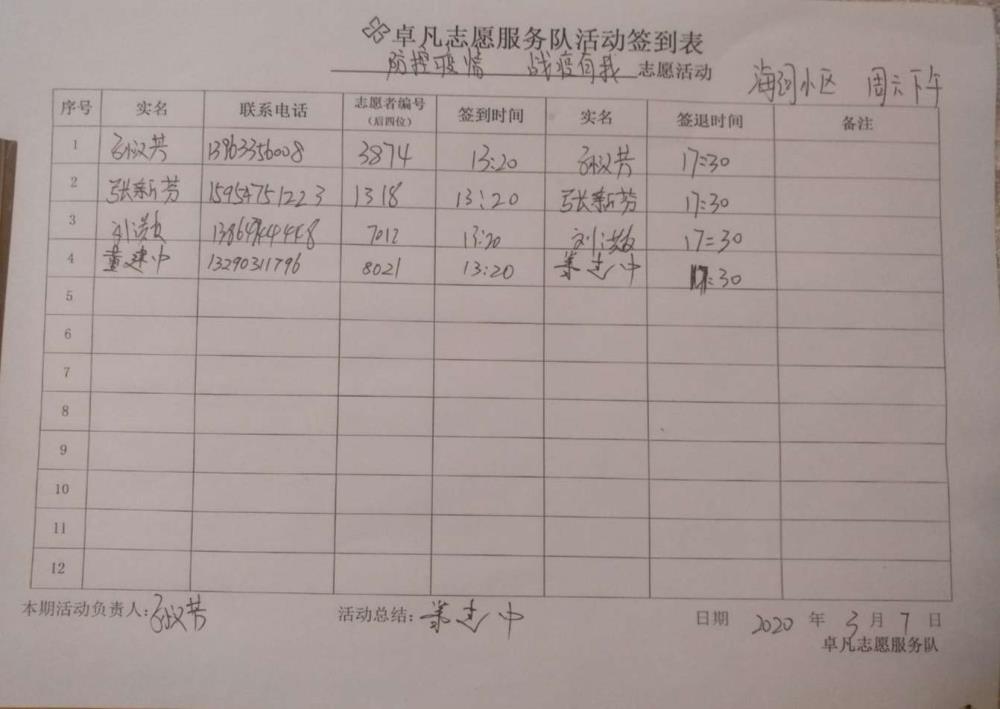 卓凡志愿服务队活动签到表
防控疫情 战疫有我 志愿活动 海河小区 周六下午
序号 实名 联系电话 志愿者编号(后四位) 签到时间 实名 签退时间 备注
1 13963356008 3874 13:20 17:30
2 张新芳 15954751223 1318 13:20 张新芳 17:30
3 7012 13:20 17:30
4 董建中 13290311796 8021 13:20 董建中 17:30
5
6
7
8
9
10
11
12
本期活动负责人: 活动总结:董建中 日期 2020 年 3 月 7 日
卓凡志愿服务队